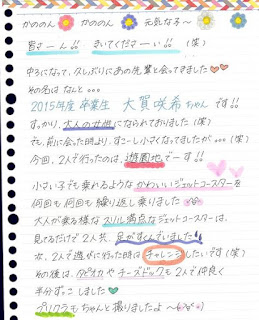 かののん かののん 元気なる〜
皆さーん!! きいてくださーい!! (笑)
中3になって、久しぶりにあの先輩と会ってきました♡♡
その名はなんと。。。
2015年度 卒業生 大賀咲希ちゃん です!!
すっかり、大人の女性になられておりました (笑)
でも、前に会った時より、すこーし小さくなってましたが。。。(笑)
今回、2人で行ったのは、遊園地でーす!!
小さい子でも乗れるような かわいいジェットコースターを
何回も何回も繰り返し乗りました
大人が乗る様な スリル満点なジェットコースターは、
見てるだけで 2人共、足がすくんでいました
次、2人で遊びに行った時は チャレンジしたいです (笑)
その後は、タピオカや チーズドックも 2人で仲良く
半分ずっこ しました♡
プリクラもちゃんと撮りましたよ〜